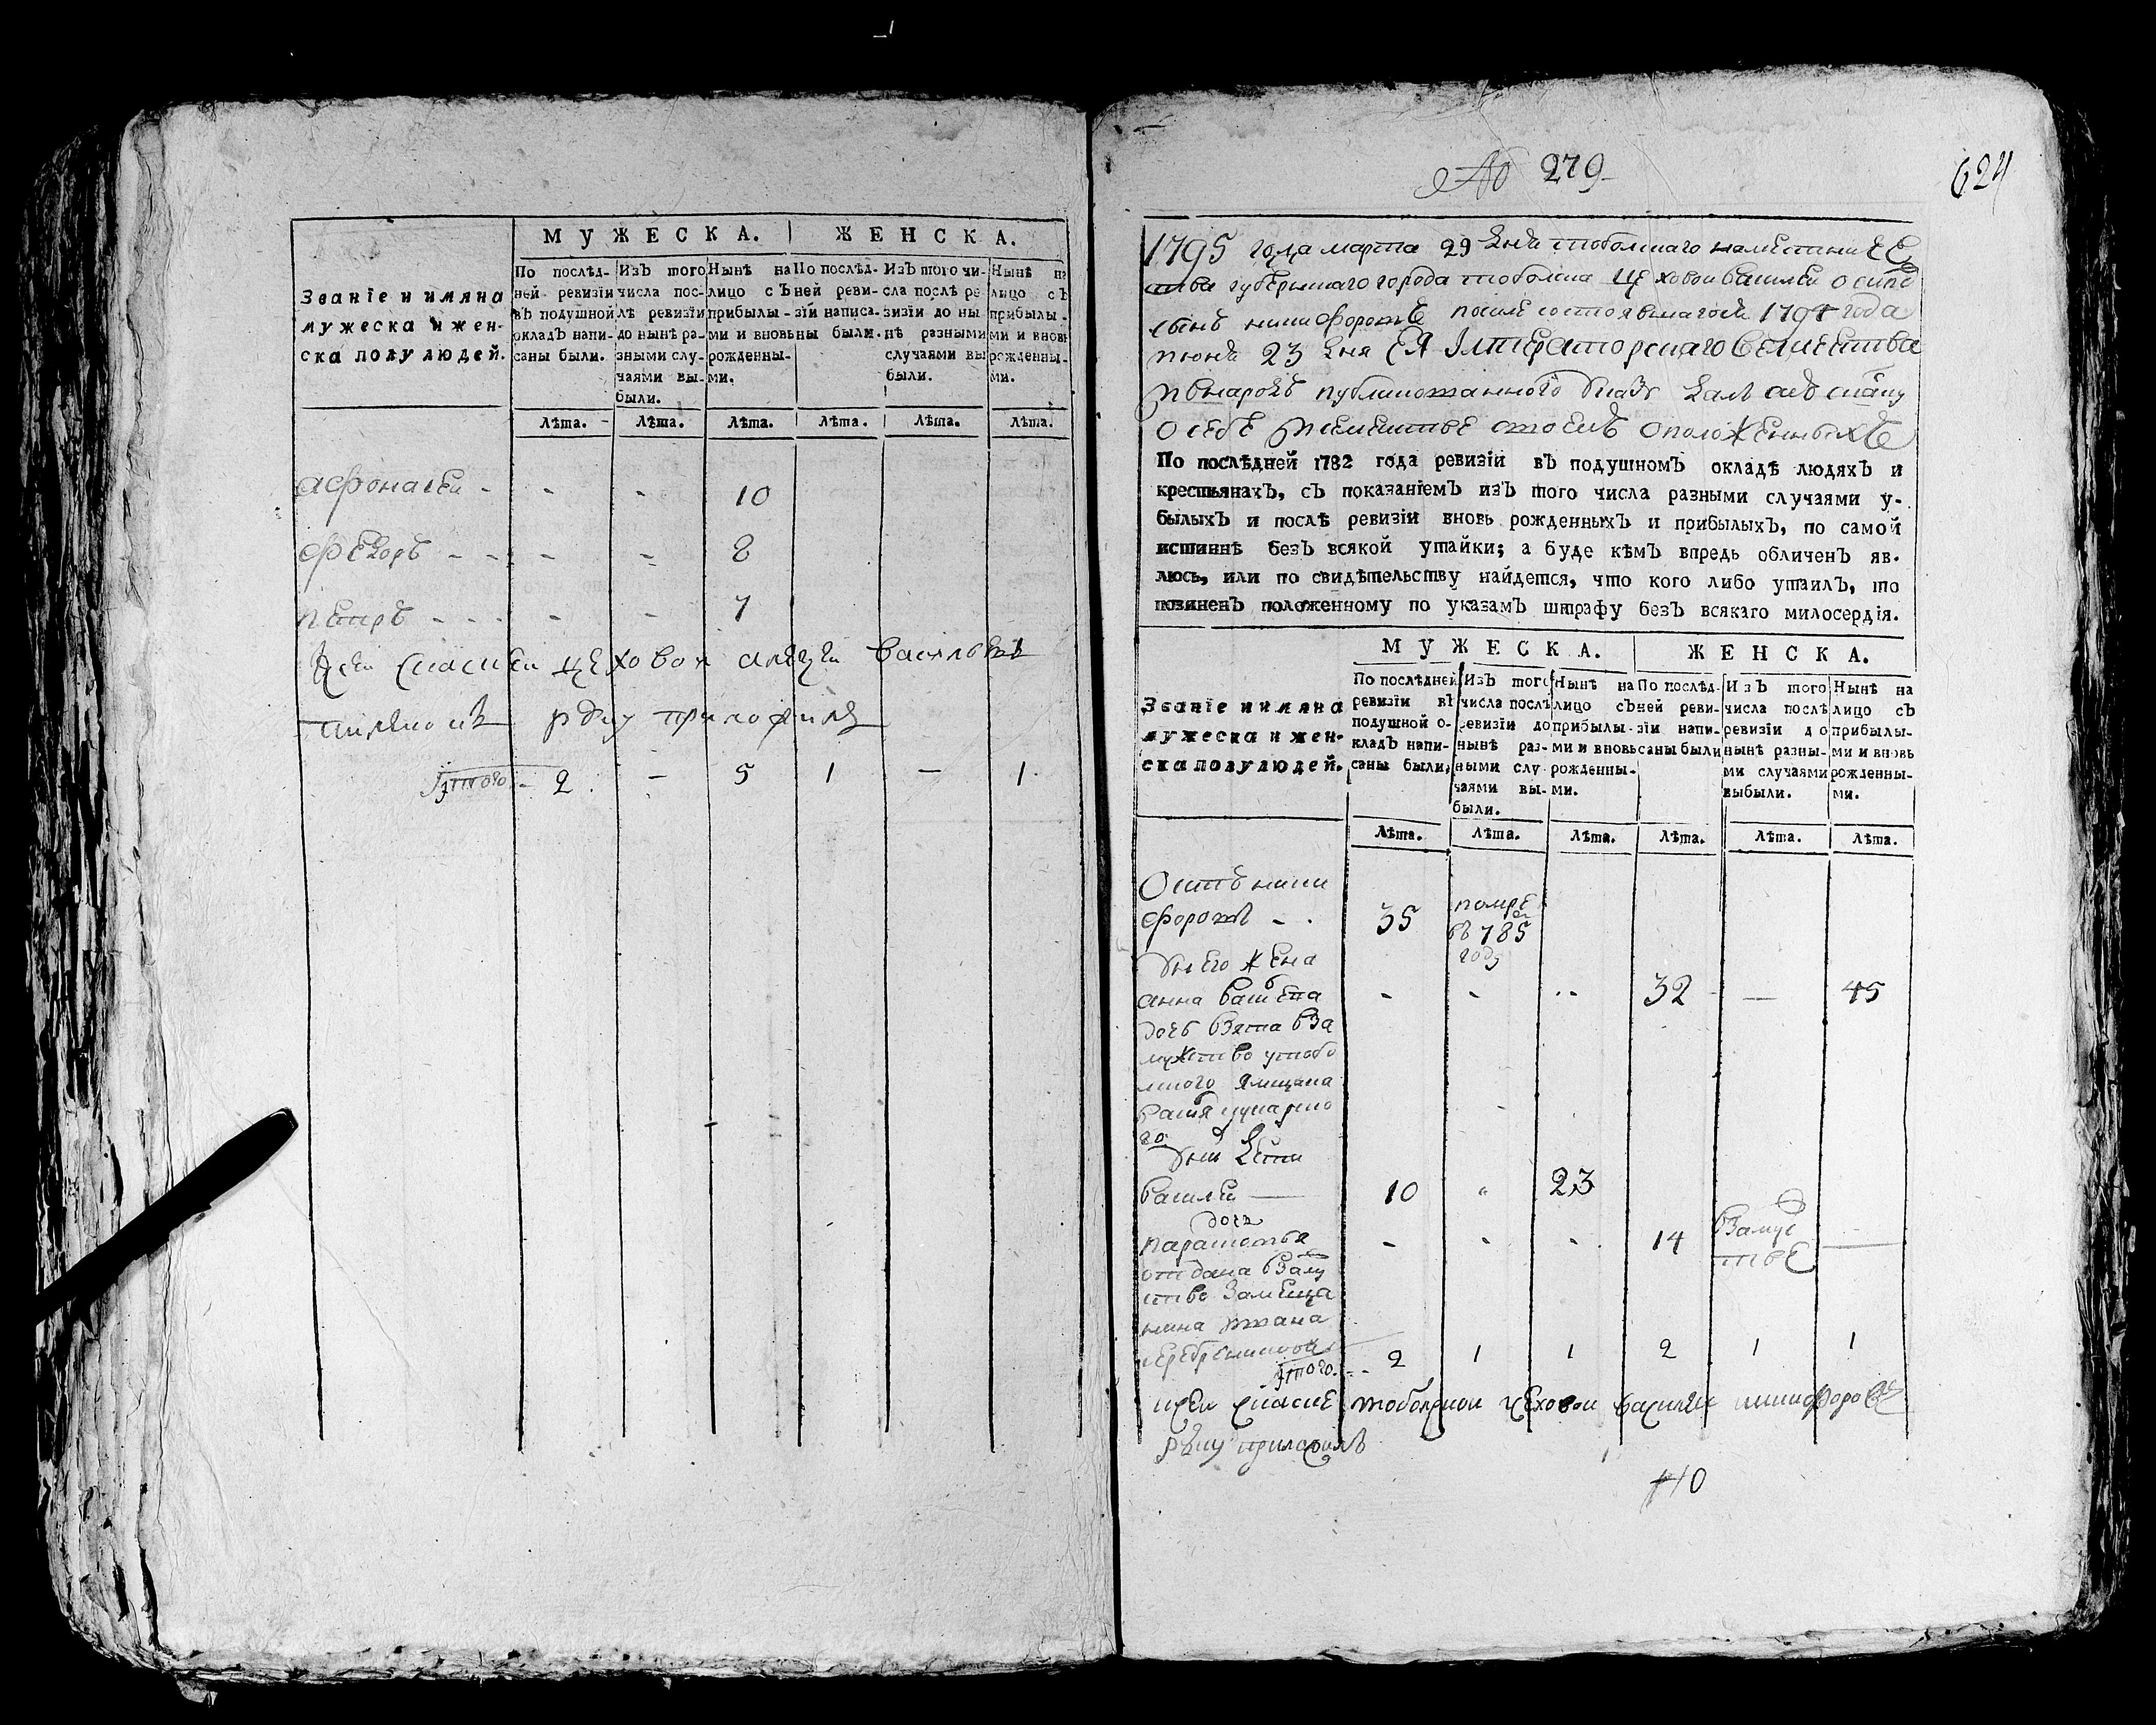 Званїе и имяна
мужеска и жен-
ска полу людей.
МУЖЕСКА.
ЖЕНСКА.
По послѣд-
ней ревизїи
въ подушной
окладъ напи-
саны были.
Изъ того
числа пос-
лѣ ревизїи
до нынѣ ра-
зными слу-
чаями вы-
были.
Нынѣ на
лицо съ
прибылы-
ми и вновь
рожденны-
ми.
По послѣд-
ней реви-
зїи написа-
ны были.
Изъ того чи-
сла послѣ ре
визїи до ны-
нѣ разными
случаями вы
были.
Нынѣ на
лицо съ
прибылы-
ми и вновь
рожденны-
ми.
Лѣта. Лѣта. Лѣта. Лѣта. Лѣта. Лѣта.
афонасеи - - - 10
федоръ - - - - 8
петръ - - - - - 7
цеховои васильевъ
руку приложилъ
Итого - 2 - 5 1 - 1
№ 279
624
1795 года марта 29 дня тоболскаго наместниче
ства губернскаго города тоболска цеховои василеи осипо
сынъ никифоровъ после состоявшагося 1794 года
июня 23 дня ЕЯ Императорскаго величества
и внародъ публикованного указу далъ сию скаску
о себе и семействе своемъ о положенныхъ
По послѣдней 1782 года ревизїи въ подушномъ окладѣ людяхъ и
крестьянахъ, съ показанїемъ изъ того числа разными случаями у-
былыхъ и послѣ ревизїи вновь рожденныхъ и прибылыхъ, по самой
истиннѣ безъ всякой утайки; а буде кѣмъ впредь обличенъ яв-
люсь, или по свидѣтельству найдется, что кого либо утаилъ, то
повиненъ положенному по указамъ штрафу безъ всякаго милосердїя.
Званїе и имяна
мужеска и жен-
ска полу людей.
МУЖЕСКА.
ЖЕНСКА.
По послѣдней
ревизїи въ
подушной о-
кладъ напи-
саны были,
Изъ того
числа послѣ
ревизїи до
нынѣ раз-
ными слу
чаями вы-
были.
Нынѣ на
лицо съ
прибылы-
ми и вновь
рожденны-
ми.
По послѣд-
ней реви-
зїи напи-
саны были
Изъ того
числа послѣ
ревизїи до
нынѣ разны-
ми случаями
выбыли.
Нынѣ на
лицо съ
прибылы-
ми и вновь
рожденны-
ми.
Лѣта. Лѣта. Лѣта. Лѣта. Лѣта. Лѣта.
Осипъ ники
форовъ - . 35 помре
въ 785
году
У него жена
анна васильева - - - 32 — 45
дочь взята вза
мужство утобо
лского ямщика
василя
го
У них дети
василеи — 10 " 23
дочь
парасковья - - - 14 взамуз
стве —
отдана взаму
ство за меща
нина ивана
Итого - - 2 1 1 2 1 1
к сеи скаске тоболскои цеховои василеи никифоровъ
руку приложилъ